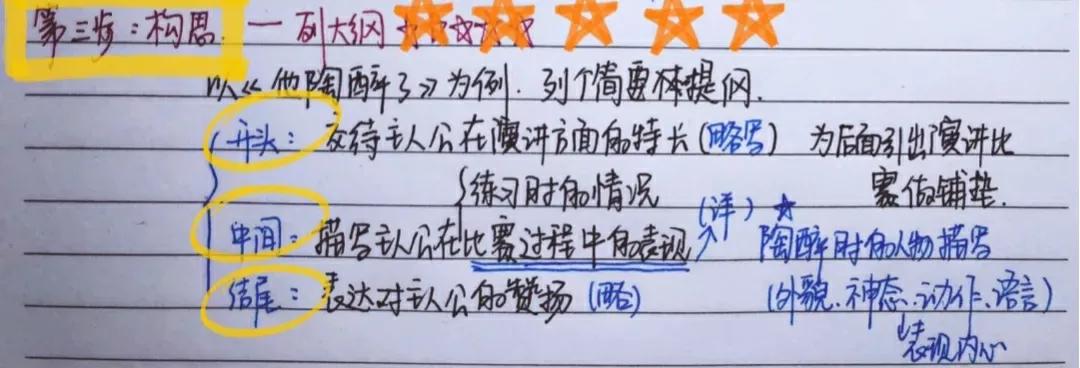 第三步：构思 — 列大纲 ☆☆☆☆☆
以《他陶醉了》为例.列个简要体提纲.
开头：交待主人公在演讲方面的特长(略写) 为后面引出演讲比
{练习时的情况 赛做铺垫.
中间：描写主人公在比赛过程中的表现 (详)☆ 陶醉时的人物描写
结尾：表达对主人公的赞扬(略) (外貌、神态、动作、语言)
表现内心